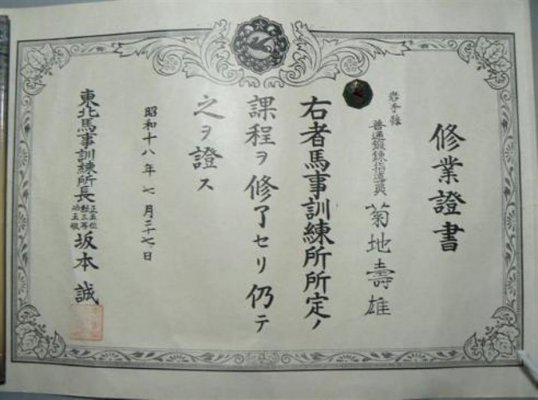 修業證書
岩手縣
普通鍛錬指導員 菊地壽雄
右者馬事訓練所所定ノ
課程ヲ修了セリ仍テ
之ヲ證ス
昭和十八年七月二十七日
東北馬事訓練所長 正五位 勲三等 功五級 坂本誠